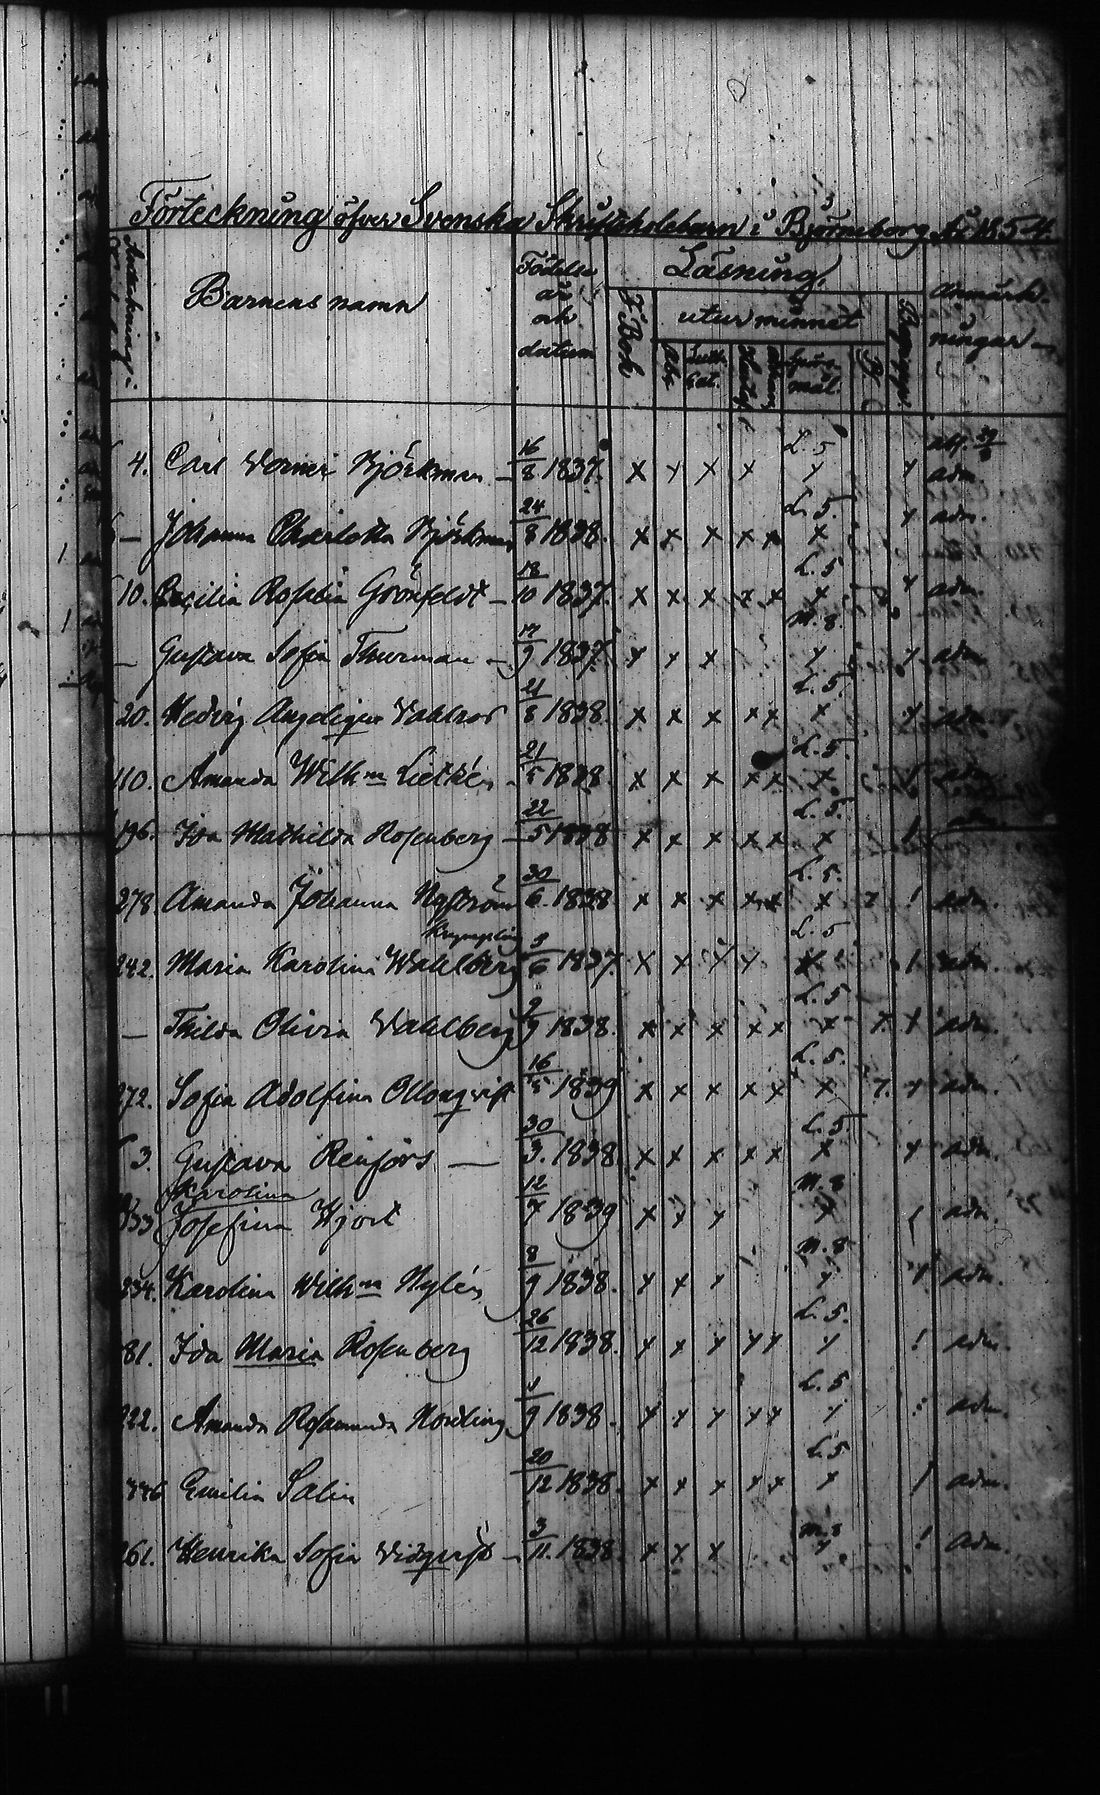 Förteckning öfver Svenska Skriftskolebarn i Björneborg År 1854.
Barnens namn
Födelse år och datum
Läsning.
utur minnet
I Bok
Abc
Luth. Cat.
Spörs-mål
Anmärk-ningar
4. Carl Werner Björkman — 16/8 1837. x x x x L. 5 x x adm.
— Johanna Charlotta Björkman 24/8 1838. x x x x x L. 5. x x adm.
10. Cecilia Rosalia Grönfeldt — 18/10 1837. x x x x x L. 5 x x adm.
— Gustava Sofia Thurman — 17/9 1837. x x x M. 8. x x adm.
20. Hedvig Angelique Vahlros 21/8 1838. x x x x x L. 5. x x adm.
110. Amanda Wilh:na 21/5 1838 x x x x x L. 5. x adm.
196. Ida Mathilda Rosenberg — 22/5 1838 x x x x x L. 5. x / adm.
278. Amanda Johanna Nyström 30/6. 1838 x x x x x L. 5. x ! adm.
Krympling
242. Maria Karolina Wahlberg 3/6 1837 x x x x L. 5 x ! adm.
— Thilda Olivia Vahlberg 2/9 1838. x x x x x L. 5 x x adm.
272. Sofia Adolfina 16/5 1839 x x x x x L. 5. x 7. x adm.
3. Gustava Renfors — 30/3. 1838. x x x x x L. 5 x x adm.
Karolina
333 Josefina Hjort 12/7 1839 x x x M. 8 x / adm.
234. Karolina Wilh:na Nylén 8/9 1838. x x x M. 8 x x adm.
81. Ida Maria Rosenberg 26/12 1838. x x x x x L. 5. x ! adm.
222. Amanda Rosamunda Nordling 1/9 1838. x x x x x L. 5 x : adm.
336 Emilia Salin 20/12 1838. x x x x x L. 5 x / adm.
261. Henrika Sofia Vidqvist — 3/11. 1838. x x x M. 8 x ! adm.